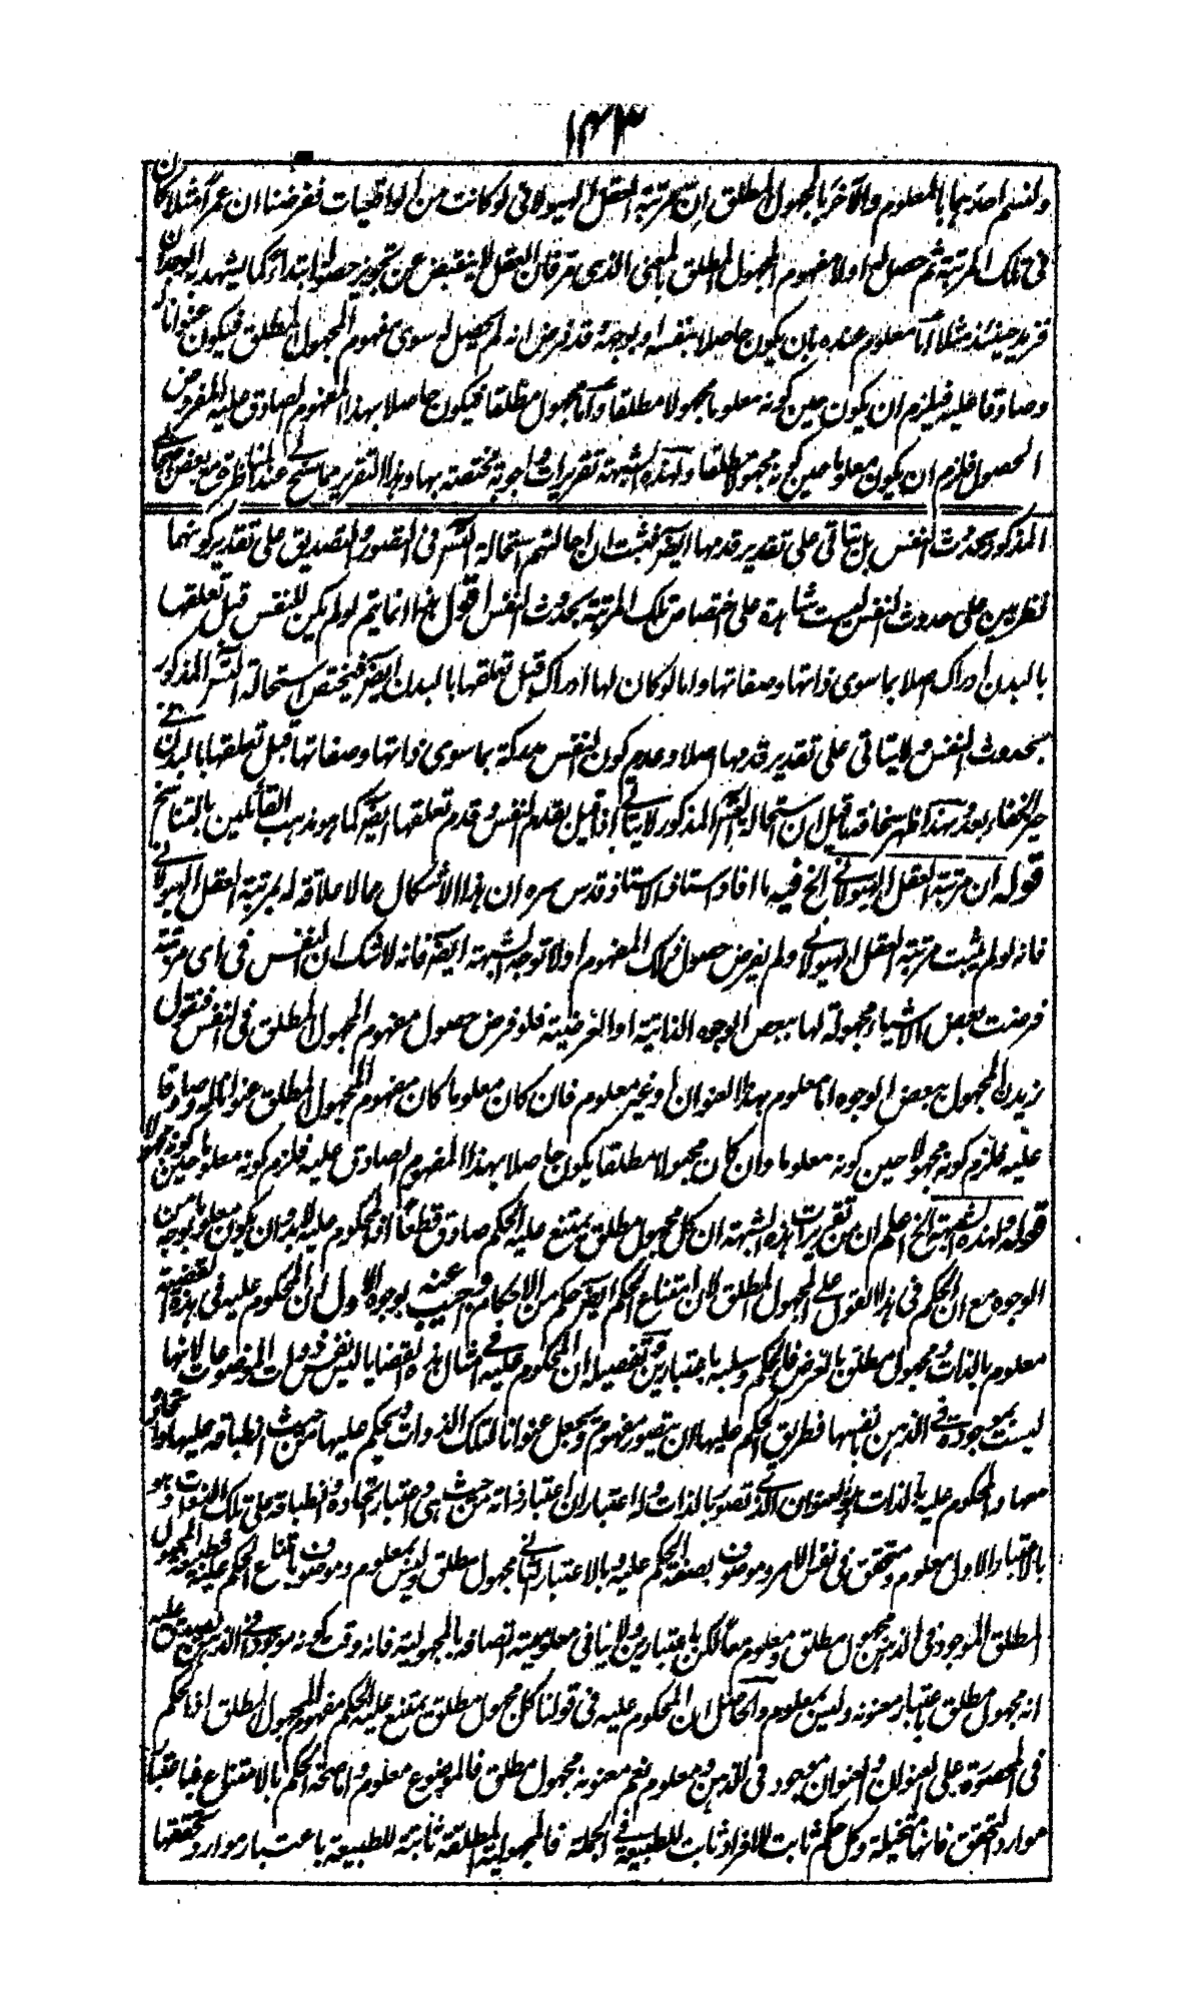 ١٤٣
ولنسم احدهما بالمعلوم والآخر بالمجهول المطلق ان مرتبة العقل الهيولاني لو كانت من الواقعيات ففرضنا ان عمرا مثلا كان
فى تلك المرتبة ثم حصل له اولا مفهوم المجهول المطلق بالمعنى الذى مر فان العقل لا ينقبض عن تجويز حصوله ابتداء كما يشهد به الوجدان
فزيد حينئذ مثلا اما معلوم عنده بان يكون حاصلا بنفسه او بوجهه قد فرض انه لم يحصل له سوى مفهوم المجهول المطلق فيكون عنوانا له
وصادقا عليه فيلزم ان يكون حين كونه معلوما مجهولا مطلقا واما مجهول مطلقا فيكون حاصلا بهذا المفهوم الصادق عليه المفروض
الحصول فلزم ان يكون معلوما حين كونه مجهولا مطلقا ولهذه الشبهة تقريرات واجوبة مختصة بها وهذا التقرير مما سنح لى عند المناظرة مع بعض
المذكور بحدوث النفس بل يتاتى على تقدير قدمها ايضا فثبت ان احالتهم استحالة التسلسل فى التصور والتصديق على تقدير كونهما
نظريين على حدوث النفس ليست شاهدة على اختصاص تلك المرتبة بحدوث النفس اقول هذا انما يتم لو لم يكن للنفس قبل تعلقها
بالبدن ادراك اصلا بما سوى ذاتها وصفاتها واما لو كان لها ادراك قبل تعلقها بالبدن ايضا فيختص استحالة التسلسل المذكور
بحدوث النفس ولا يتاتى على تقدير قدمها اصلا وعدم كون النفس مدركة بما سوى ذاتها وصفاتها قبل تعلقها بالبدن فى
حيز الخفاء بعد وبهذا ظهر سخافة ما قيل ان استحالة التسلسل المذكور لا يتاتى اذا قيل بقدم النفس وقدم تعلقها ايضا كما هو مذهب القائلين بالتناسخ
قوله ان مرتبة العقل الهيولانى الخ فيه ما افاد استاذ الاستاذ قدس سره ان هذا الاشكال مما لا علاقة له بمرتبة العقل الهيولانى
فانه لو لم يثبت مرتبة العقل الهيولانى ولم يفرض حصول ذلك المفهوم اولا توجه الشبهة ايضا فانه لا شك ان النفس فى اى مرتبة
فرضت بعض الاشياء مجهولة لها ببعض الوجوه الذاتية او العرضية فلو فرض حصول مفهوم المجهول المطلق فى النفس فنقول
زيد المجهول ببعض الوجوه اما معلوم بهذا العنوان او غير معلوم فان كان معلوما كان مفهوم المجهول المطلق عنوانا له وصادقا
عليه فلزم كونه مجهولا حين كونه معلوما وان كان مجهولا مطلقا يكون حاصلا بهذا المفهوم الصادق عليه فلزم كونه معلوما حين كونه مجهولا
قوله ولهذه الشبهة الخ اعلم ان من تقريرات هذه الشبهة ان كل مجهول مطلق يمتنع عليه الحكم صادق قطعا اذ المحكوم عليه لا بد وان يكون معلوما بوجه من
الوجوه مع ان الحكم فى هذا القول على المجهول المطلق لان امتناع الحكم ايضا حكم من الاحكام واجيب عنه بوجوه الاول ان المحكوم عليه فى هذه القضية
معلوم بالذات ومجهول مطلق بالعرض فالحكم وسلبه باعتبارين وتفصيله ان المحكوم عليه فى امثال هذه القضايا ليس نفس ذوات الموضوعات لانها
ليست بموجودة فى الذهن بانفسها فطريق الحكم عليها ان يتصور مفهوم ويجعل عنوانا لتلك الذوات ويحكم عليها من حيث انطباقه عليها واتحاده
معها والمحكوم عليه بالذات هو العنوان الذى تصور بالذات وله اعتباران اعتبار ذاته من حيث هى واعتبار اتحاده وانطباقه على تلك الذوات وهو
بالاعتبار الاول معلوم ومتحقق فى نفس الامر وموصوف بصفة الحكم عليه وبالاعتبار الثانى مجهول مطلق وليس بمعلوم وموصوف بامتناع الحكم عليه فطبيعة المجهول
المطلق الموجود فى الذهن مجهول مطلق ومعلوم معا لكن باعتبارين ولا ينافى معلوميته اتصافه بالمجهولية فانه وقت كونه موجودا فى الذهن يصدق عليه
انه مجهول مطلق باعتبار معنونه وليس بمعلوم والحاصل ان المحكوم عليه فى قولنا كل مجهول مطلق يمتنع عليه الحكم مفهوم المجهول المطلق اذ الحكم
فى المحصورة على العنوان والعنوان موجود فى الذهن ومعلوم نعم معنونه مجهول مطلق فالموضوع معلوم واما صحة الحكم بالامتناع فباعتبار
موارد التحقق فانها متخيلة وكل حكم ثابت للافراد ثابت للطبيعة فى الجملة فالمجهولية المطلقة ثابتة للطبيعة باعتبار موارد تحققها